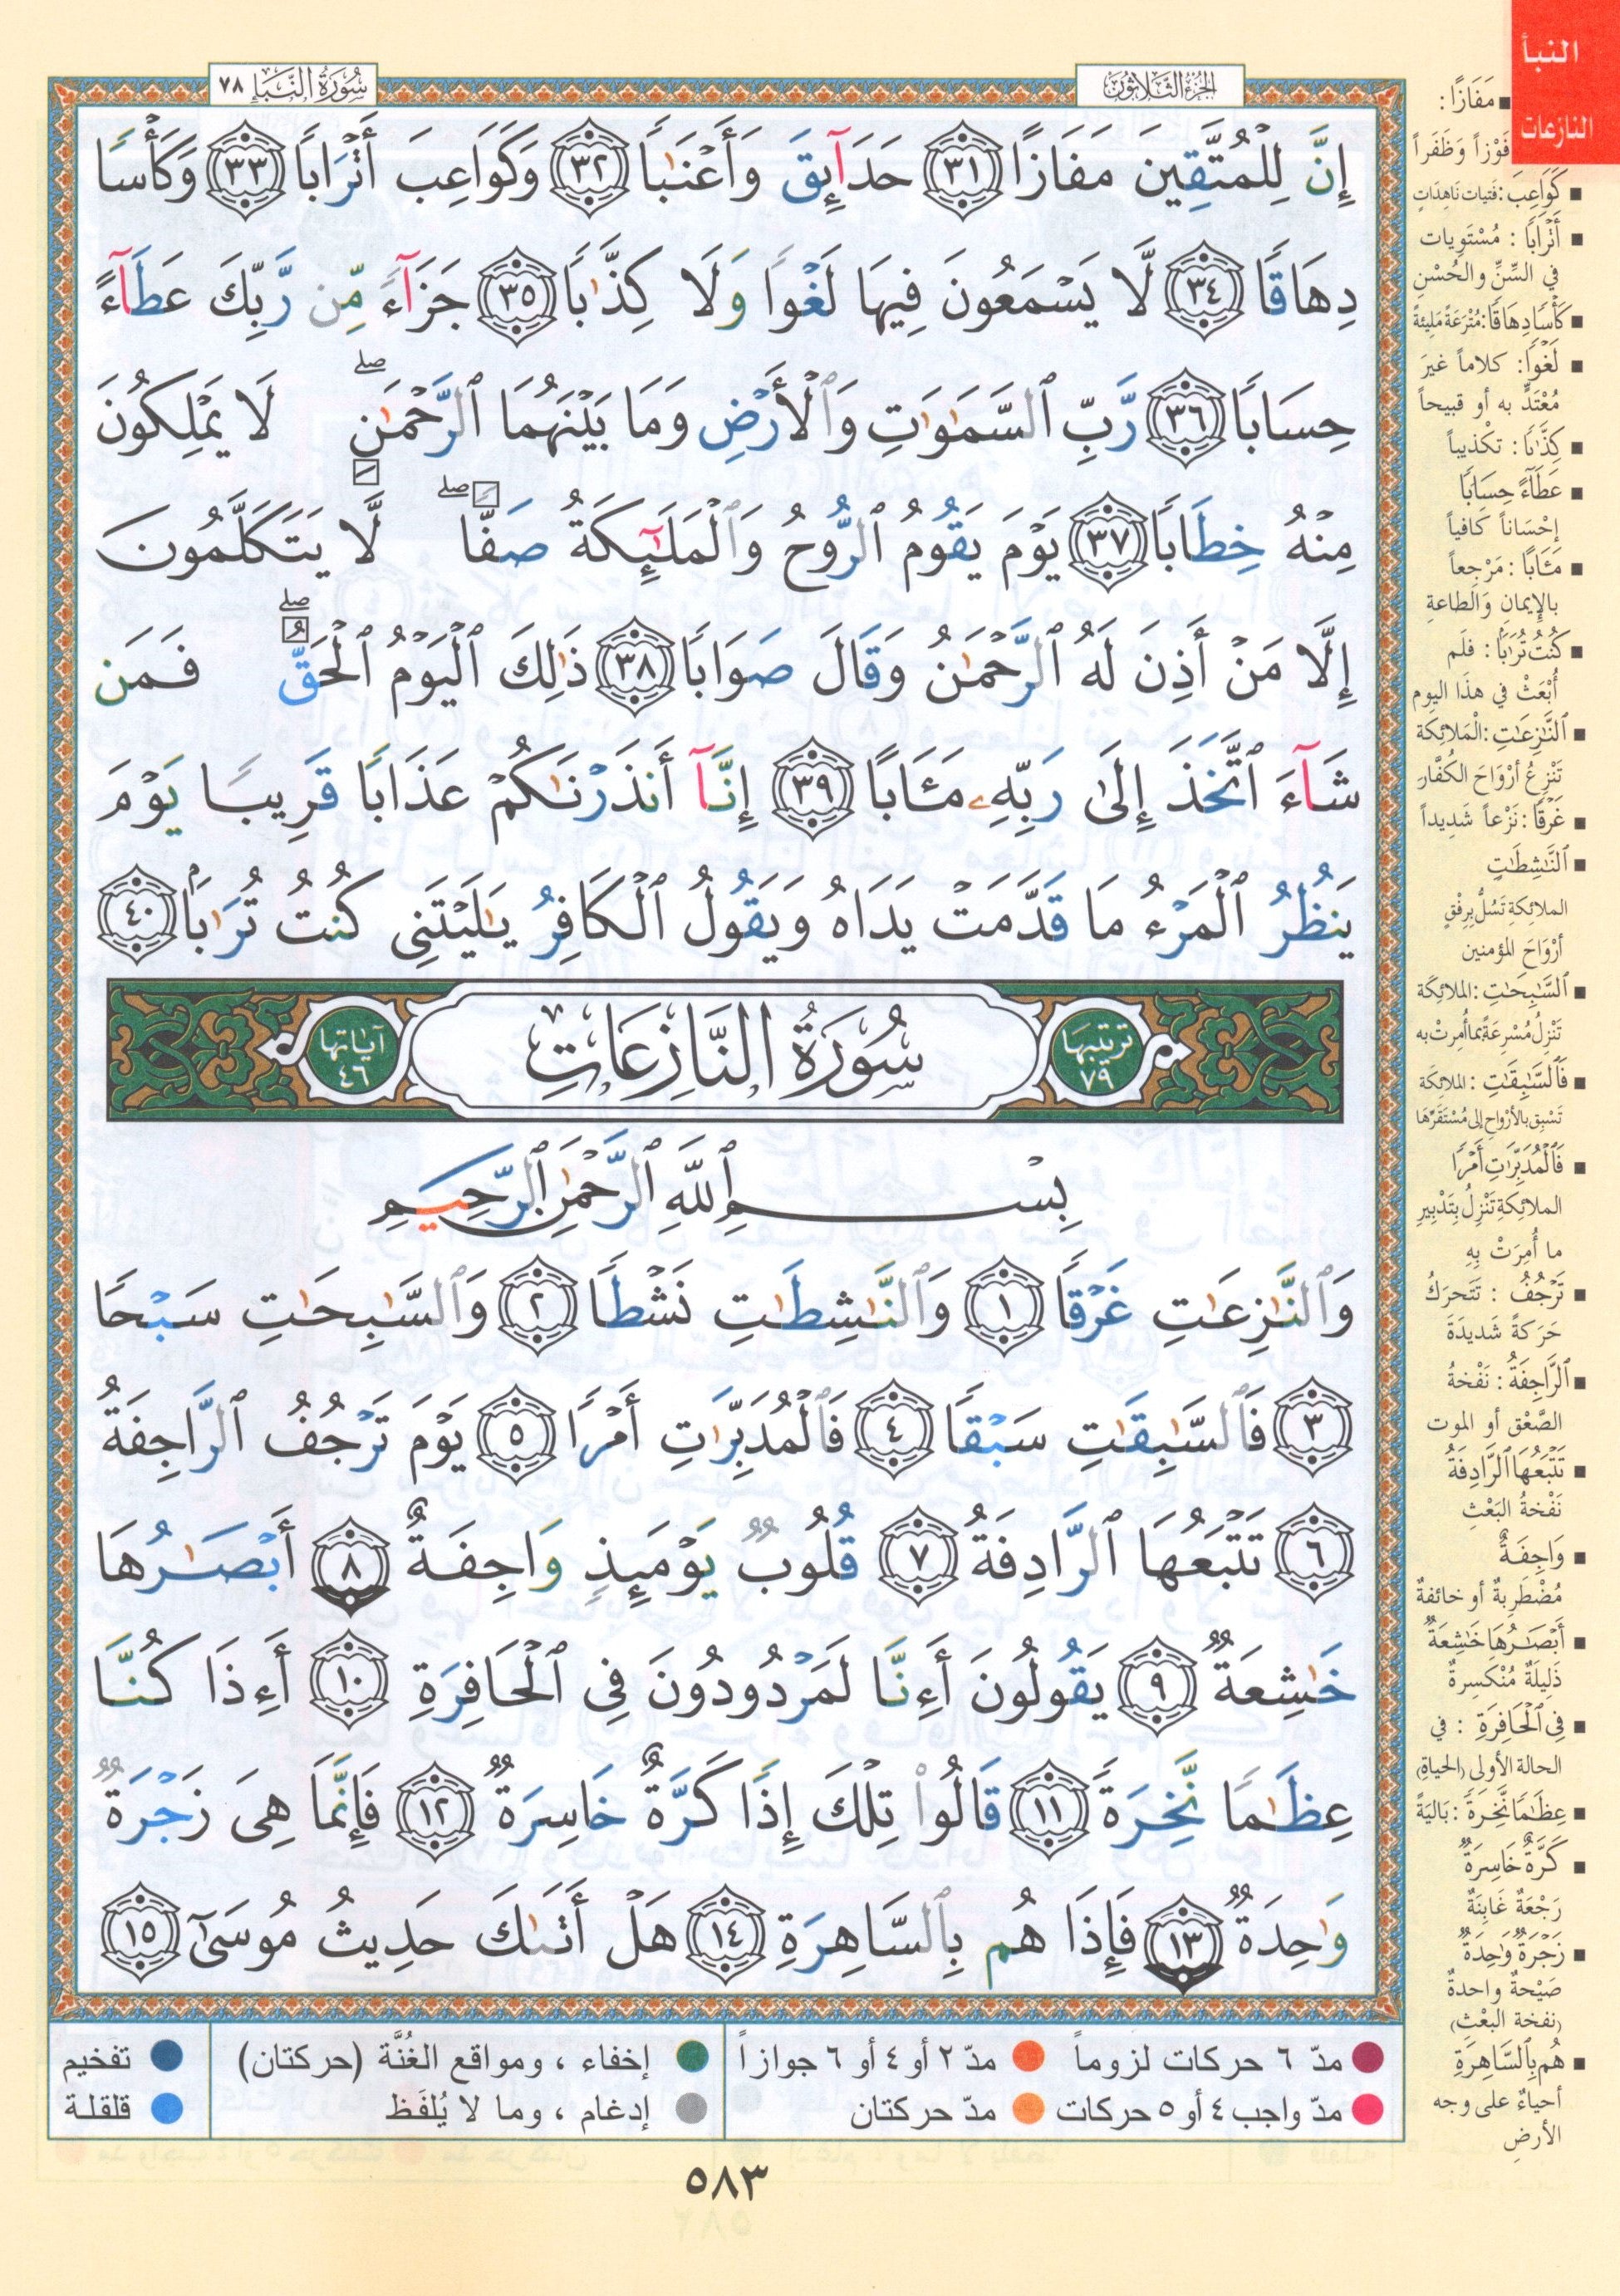 النبأ
النازعات
سُورَةُ النَّبَإِ ٧٨
الجُزْءُ الثَّلَاثُونَ
إِنَّ لِلْمُتَّقِينَ مَفَازًا ٣١ حَدَآئِقَ وَأَعْنَٰبًا ٣٢ وَكَوَاعِبَ أَتْرَابًا ٣٣ وَكَأْسًا
دِهَاقًا ٣٤ لَّا يَسْمَعُونَ فِيهَا لَغْوًا وَلَا كِذَّٰبًا ٣٥ جَزَآءً مِّن رَّبِّكَ عَطَآءً
حِسَابًا ٣٦ رَّبِّ ٱلسَّمَٰوَٰتِ وَٱلْأَرْضِ وَمَا بَيْنَهُمَا ٱلرَّحْمَٰنِ ۖ لَا يَمْلِكُونَ
مِنْهُ خِطَابًا ٣٧ يَوْمَ يَقُومُ ٱلرُّوحُ وَٱلْمَلَٰٓئِكَةُ صَفًّا ۖ لَّا يَتَكَلَّمُونَ
إِلَّا مَنْ أَذِنَ لَهُ ٱلرَّحْمَٰنُ وَقَالَ صَوَابًا ٣٨ ذَٰلِكَ ٱلْيَوْمُ ٱلْحَقُّ ۖ فَمَن
شَآءَ ٱتَّخَذَ إِلَىٰ رَبِّهِۦ مَـَٔابًا ٣٩ إِنَّآ أَنذَرْنَٰكُمْ عَذَابًا قَرِيبًا يَوْمَ
يَنظُرُ ٱلْمَرْءُ مَا قَدَّمَتْ يَدَاهُ وَيَقُولُ ٱلْكَافِرُ يَٰلَيْتَنِى كُنتُ تُرَٰبًۢا ٤٠
ترتيبها ٧٩
سُورَةُ النَّازِعَاتِ
آياتها ٤٦
بِسْمِ ٱللَّهِ ٱلرَّحْمَٰنِ ٱلرَّحِيمِ
وَٱلنَّٰزِعَٰتِ غَرْقًا ١ وَٱلنَّٰشِطَٰتِ نَشْطًا ٢ وَٱلسَّٰبِحَٰتِ سَبْحًا
٣ فَٱلسَّٰبِقَٰتِ سَبْقًا ٤ فَٱلْمُدَبِّرَٰتِ أَمْرًا ٥ يَوْمَ تَرْجُفُ ٱلرَّاجِفَةُ
٦ تَتْبَعُهَا ٱلرَّادِفَةُ ٧ قُلُوبٌ يَوْمَئِذٍ وَاجِفَةٌ ٨ أَبْصَٰرُهَا
خَٰشِعَةٌ ٩ يَقُولُونَ أَءِنَّا لَمَرْدُودُونَ فِى ٱلْحَافِرَةِ ١٠ أَءِذَا كُنَّا
عِظَٰمًا نَّخِرَةً ١١ قَالُوا۟ تِلْكَ إِذًا كَرَّةٌ خَاسِرَةٌ ١٢ فَإِنَّمَا هِىَ زَجْرَةٌ
وَٰحِدَةٌ ١٣ فَإِذَا هُم بِٱلسَّاهِرَةِ ١٤ هَلْ أَتَىٰكَ حَدِيثُ مُوسَىٰٓ ١٥
■ مَفَازًا :
فَوْزاً وَظَفَراً
■ كَوَاعِبَ : فَتيات نَاهِدَاتٍ
■ أَتْرَابًا : مُسْتَوِيات
في السِّنِّ والحُسْنِ
■ كَأْسًا دِهَاقًا : مُتْرَعَةً مَليئةً
■ لَغْوًا : كلاماً غيرَ
مُعْتَدٍّ به أو قبيحاً
■ كِذَّٰبًا : تكْذيباً
■ عَطَآءً حِسَابًا
إحْسَاناً كَافياً
■ مَـَٔابًا : مَرْجِعاً
بالإيمانِ وَالطاعةِ
■ كُنتُ تُرَٰبًا : فلَم
أُبْعَثْ في هذَا اليوم
■ ٱلنَّٰزِعَٰتِ : الْمَلائِكَة
تَنْزِعُ أرْوَاحَ الكُفَّار
■ غَرْقًا : نَزْعاً شَدِيداً
■ ٱلنَّٰشِطَٰتِ
الملائِكةِ تَسُلُّ بِرِفْقٍ
أرْوَاحَ المؤمنين
■ ٱلسَّٰبِحَٰتِ : الملائِكَة
تَنْزِلُ مُسْرِعَةً بما أُمِرتْ به
■ فَٱلسَّٰبِقَٰتِ : الملائِكَة
تَسْبِق بالأرْواحِ إلى مُسْتَقَرِّهَا
■ فَٱلْمُدَبِّرَٰتِ أَمْرًا
الملائِكةِ تَنْزِلُ بِتَدْبِيرِ
ما أُمِرَتْ بِهِ
■ تَرْجُفُ : تَتَحرَكُ
حَرَكةً شَديدَةً
■ ٱلرَّاجِفَةُ : نَفْخةُ
الصَّعْق أو الموت
■ تَتْبَعُهَا ٱلرَّادِفَةُ
نَفْخةُ البَعْثِ
■ وَاجِفَةٌ
مُضْطَرِبةٌ أو خائفةٌ
■ أَبْصَٰرُهَا خَٰشِعَةٌ
ذَلِيلَةٌ مُنْكَسِرةٌ
■ فِى ٱلْحَافِرَةِ : في
الحالة الأولى (الحياةِ)
■ عِظَٰمًا نَّخِرَةً : بَاليَةً
■ كَرَّةٌ خَاسِرَةٌ
رَجْعَةٌ غَابِنَةٌ
■ زَجْرَةٌ وَٰحِدَةٌ
صَيْحةٌ واحدةٌ
(نفخة البعْث)
■ هُم بِٱلسَّاهِرَةِ
أحياءٌ على وجه
الأرضِ
مدّ ٦ حركات لزوماً ● مدّ ٢ أو ٤ أو ٦ جوازاً ● إخفاء ، ومواقع الغُنَّة (حركتان) ● تفخيم
مدّ واجب ٤ أو ٥ حركات ● مدّ حركتان ● إدغام ، وما لا يُلفَظ ● قلقلة
٥٨٣